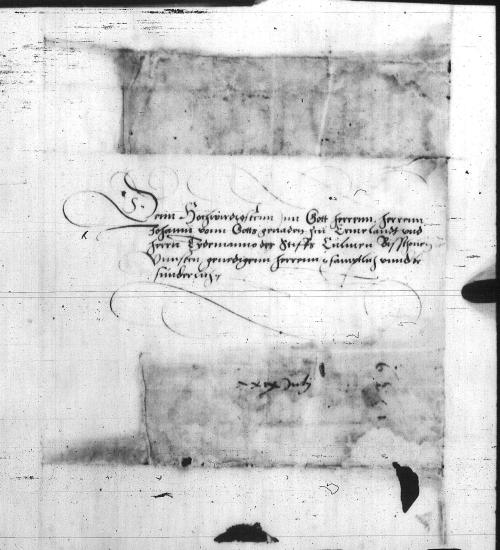 Denn Hochwirdigstenn Inn Gott herrenn, herrenn
Johann vonn Gots gnaden zu Ermelandt vnd
herrn Tydemanno der Stiffte Culmen Bisschouen
Vnnsern gnedigenn herrenn samptlich vnnd
sunderlich